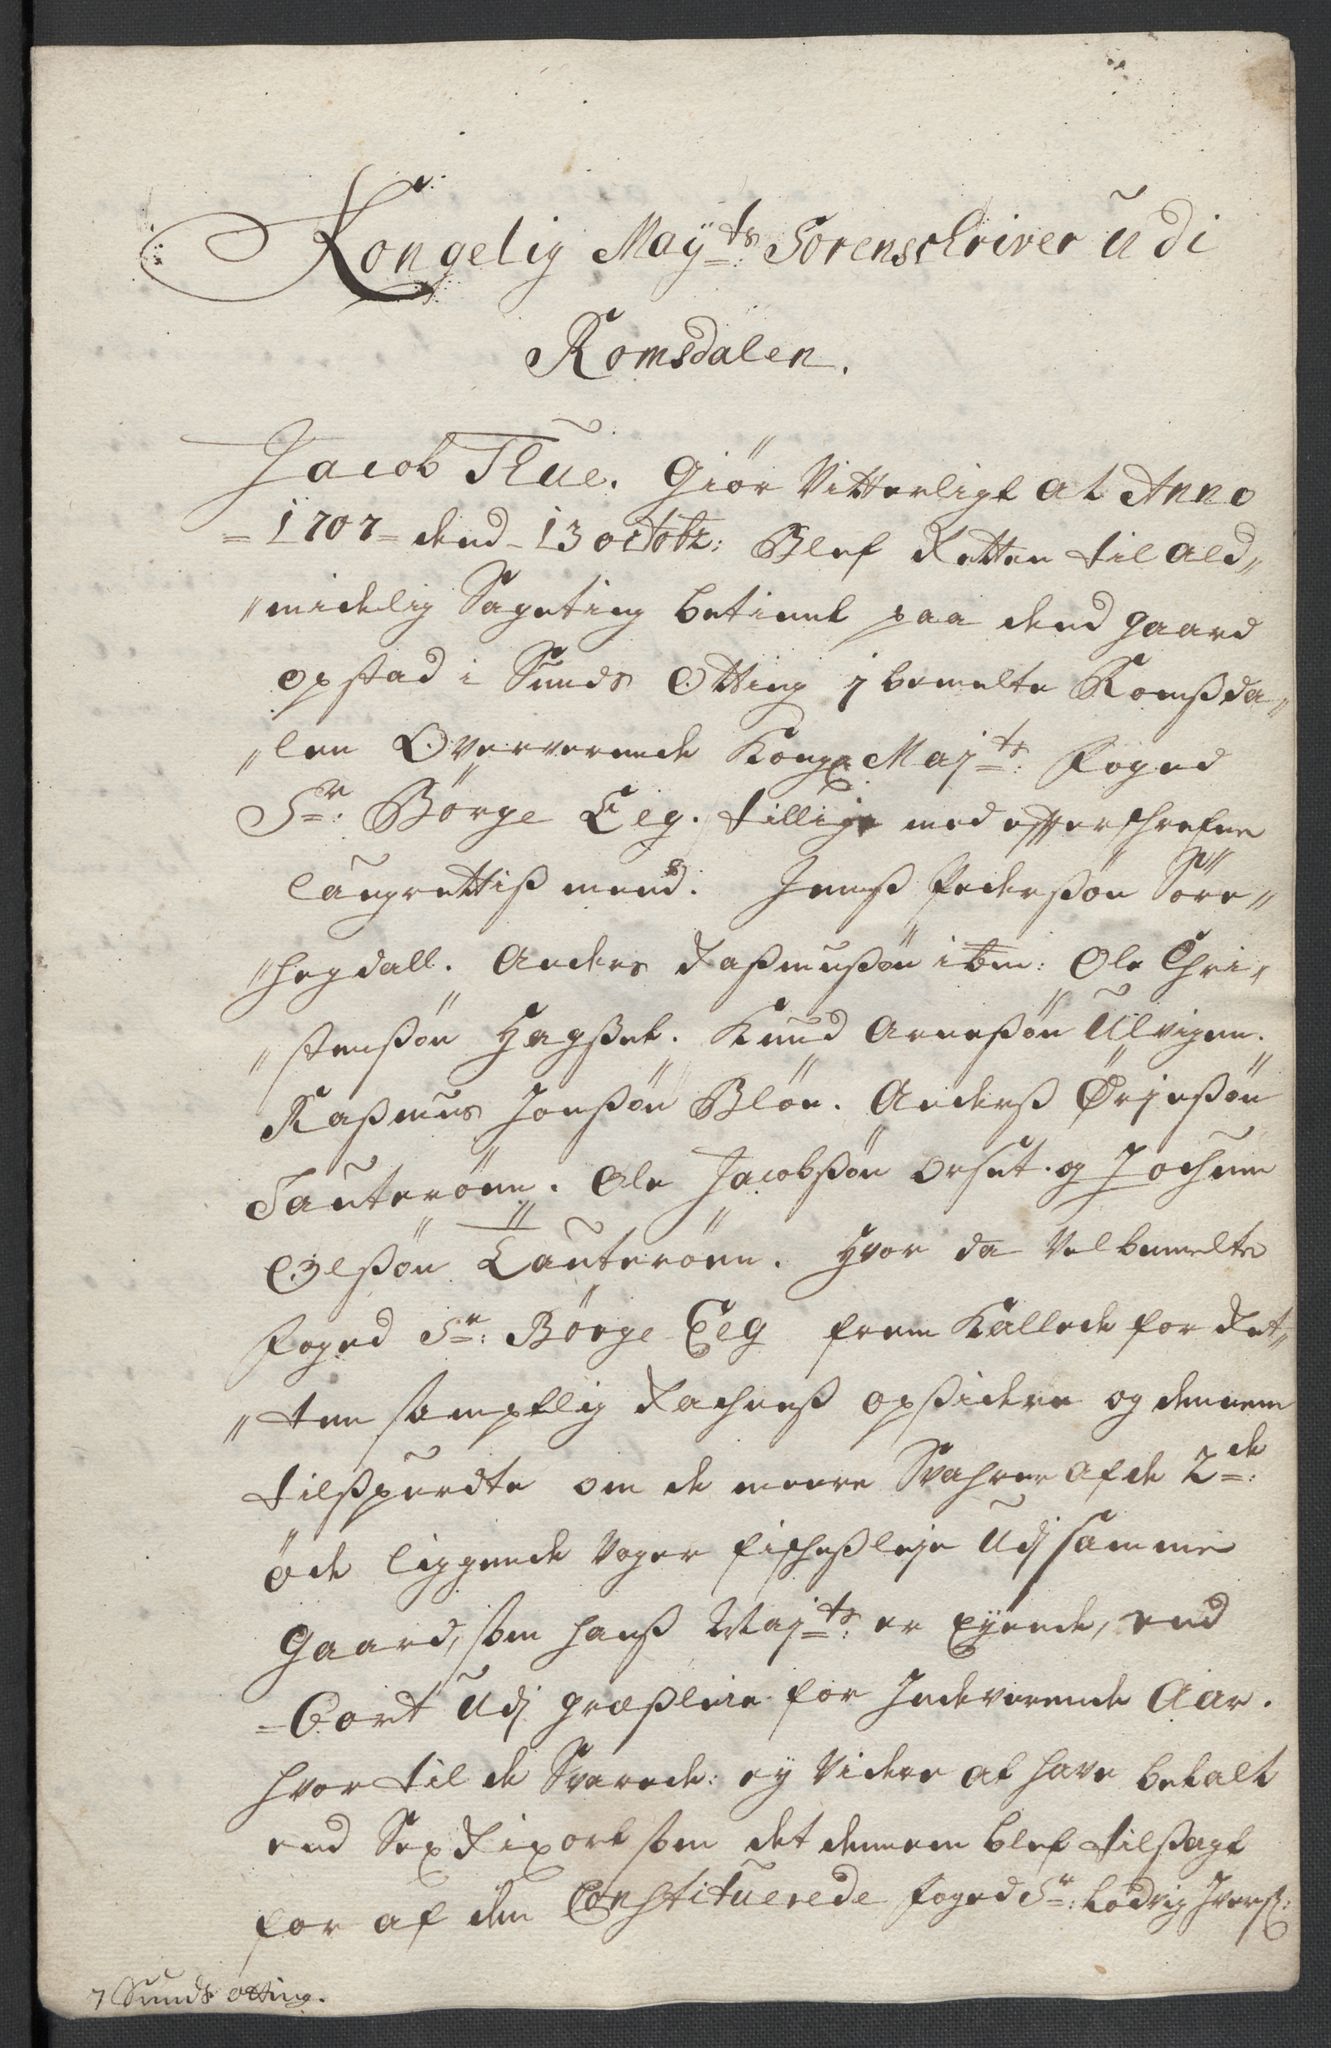 Kongelig May:ts Sorenschriver udi
Romsdalen.
Jacob Thue. Giör Vitterligt at Anno
=1707= dend 13 octobr: Blef Retten til ald„
„mindelig Sageting betient paa dend gaard
opstad i Sunds Otting j bemelte Romßda„
„len Oververende Kongl Maj:ts Foged
Sr: Börge Eeg. tillige med efterschrefne
Laugrettiß mend. Jenß Pederßön Söre„
„hegdall. Anders Raßmußön ibm: Ole Chri„
„stenßön Hagßet. Knud Arneßön Ulvigen.
Raßmus Jonßön Blöe. Anderß Örjenßön
Tauteröen. Ole Jacobßön orset. og Jochum
Olßön Tauteröen. Hvor da Velbemelte
Foged Sr: Börge Eeg frem Kallede for Ret„
„ten samptlig Rachneß opsidere og dennem
tilßpurdte om de meere Svahrer af de 2de:
öde liggende Voger fischeßleje Udj samme
Gaard, som hanß Maj:ts er Eyende, end
=Bort Udj græßleie for Indeverende Aar.
hvor til de Svarede: ey Videre at have betalt
end Sex Rixort som det dennem blef tilßagt
for af den Constituerede foged Sr: Lodvig Iverß:
7 Sunds otting.